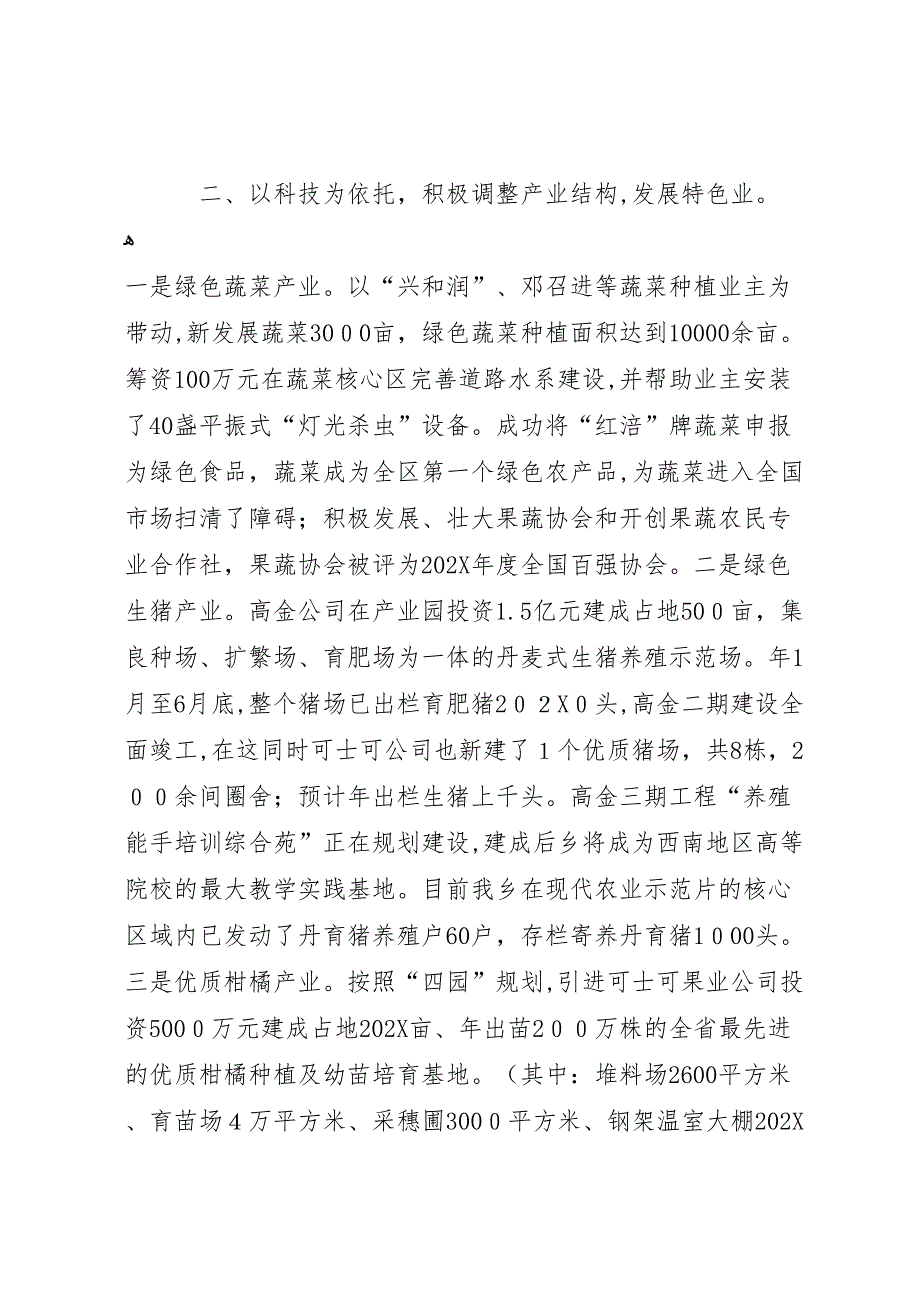 二、以科技为依托，积极调整产业结构,发展特色业。
ﻫ
一是绿色蔬菜产业。以“兴和润”、邓召进等蔬菜种植业主为
带动,新发展蔬菜3000亩，绿色蔬菜种植面积达到10000余亩。
筹资100万元在蔬菜核心区完善道路水系建设,并帮助业主安装
了40盏平振式“灯光杀虫”设备。成功将“红涪”牌蔬菜申报
为绿色食品，蔬菜成为全区第一个绿色农产品,为蔬菜进入全国
市场扫清了障碍；积极发展、壮大果蔬协会和开创果蔬农民专
业合作社，果蔬协会被评为202X年度全国百强协会。二是绿色
生猪产业。高金公司在产业园投资1.5亿元建成占地500亩，集
良种场、扩繁场、育肥场为一体的丹麦式生猪养殖示范场。年1
月至6月底,整个猪场已出栏育肥猪202X0头,高金二期建设全
面竣工,在这同时可士可公司也新建了1个优质猪场，共8栋，2
00余间圈舍；预计年出栏生猪上千头。高金三期工程“养殖
能手培训综合苑”正在规划建设,建成后乡将成为西南地区高等
院校的最大教学实践基地。目前我乡在现代农业示范片的核心
区域内已发动了丹育猪养殖户60户，存栏寄养丹育猪1000头。
三是优质柑橘产业。按照“四园”规划,引进可士可果业公司投
资5000万元建成占地202X亩、年出苗200万株的全省最先进
的优质柑橘种植及幼苗培育基地。（其中：堆料场2600平方米
、育苗场4万平方米、采穗圃3000平方米、钢架温室大棚202X